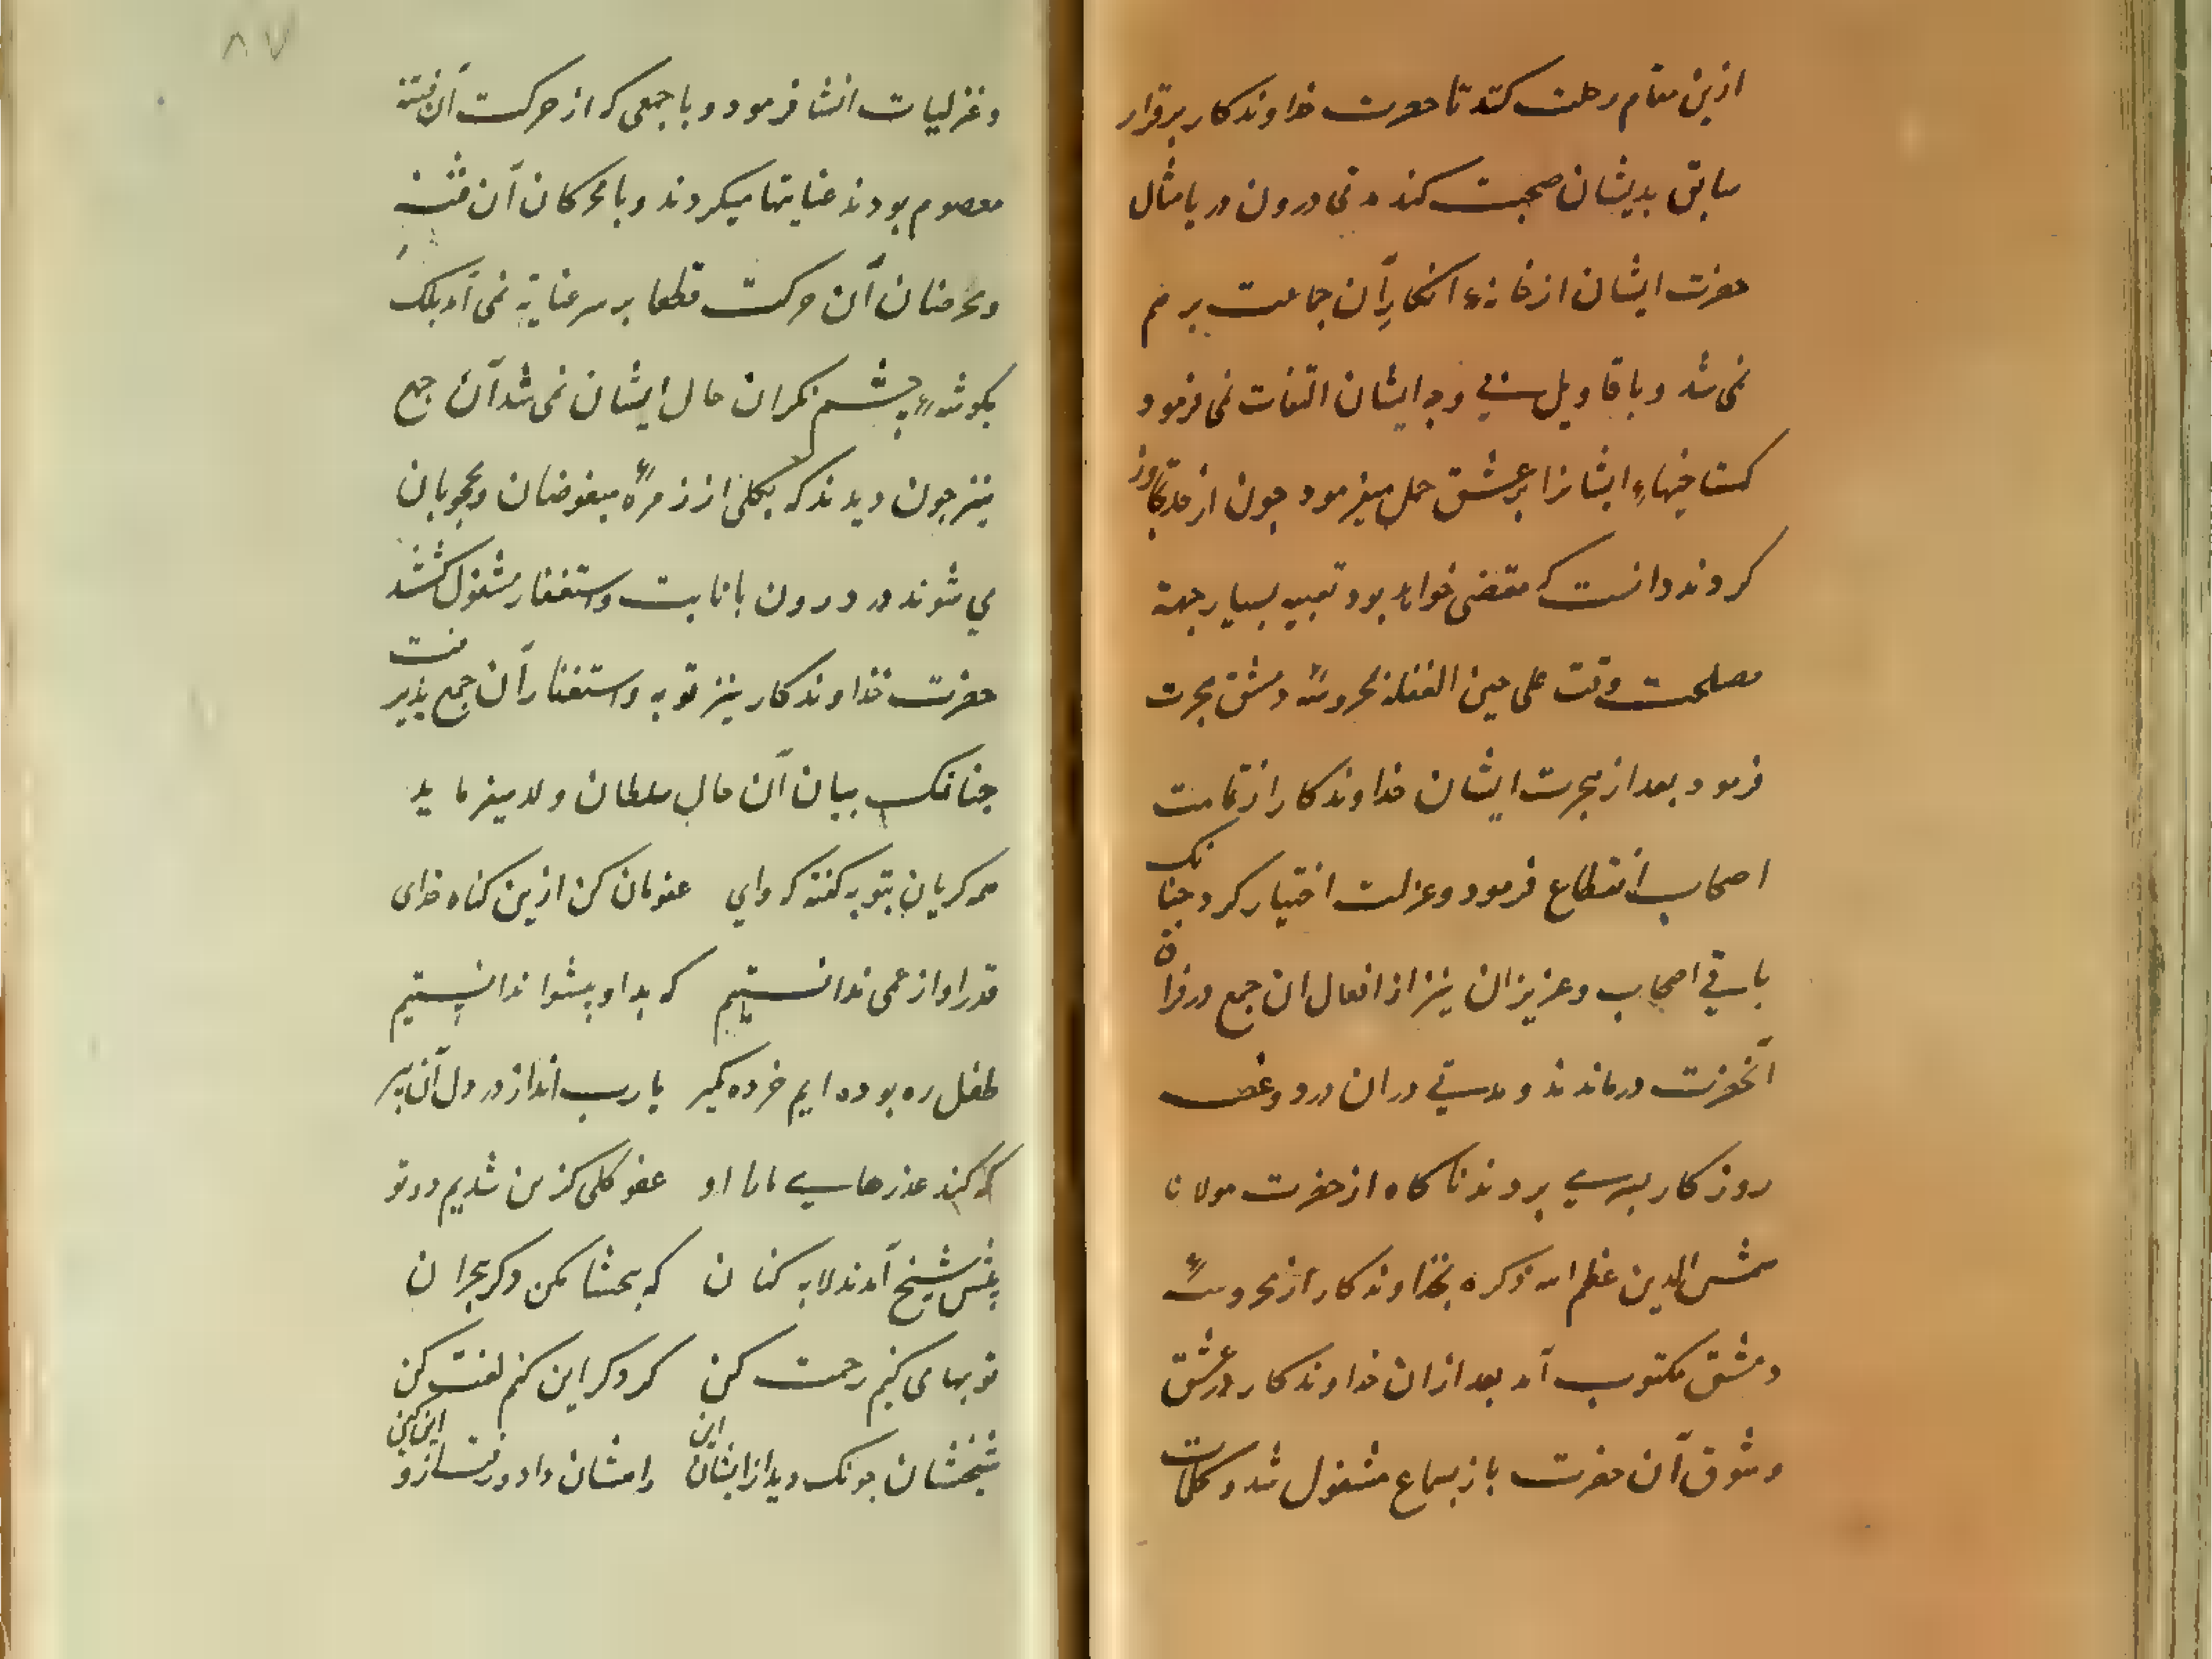 ازین مقام رحلت کند تا حضرت خداوندکار برقرار
سابق بدیشان صحبت کند مدتی درون دریا مثال
حضرت ایشان از خانهٔ انکار آن جماعت برهم
نمی شد و باقاویل بی وجه ایشان التفات نمی فرمود
کستاخیهاء ایشانرا بر عشق حمل میفرمود جون از حد تجاوز
کردند دانست که مقتضی خواهد بود تعبیه بسیار جهة
مصلحت وقت علی حین الغفلة بمحروسهٔ دمشق هجرت
فرمود بعد از هجرت ایشان خداوندکار از تمامت
اصحاب انقطاع فرمود و عزلت اختیار کرد جنانک
باقی اصحاب و عزیزان نیز از افعال ان جمع در فراق
آنحضرت درماندند و مدتی در ان درد و غصه
روزکار بسر می بردند ناکاه از حضرت مولانا
شمس الدین عظم الله ذکره بخداوندکار از محروسهٔ
دمشق مکتوب آمد بعد ازان خداوندکار در عشق
و شوق آن حضرت باز بسماع مشغول شد و کلمات
۸۷
و غزلیات انشا فرمود و با جمعی که از حرکت آن فتنه
معصوم بودند عنایتها میکردند و با محرکان آن فتنه
و محرضان آن حرکت قطعا بر سر عنایة نمی آمد بلک
بکوشهٔ جشم نکران حال ایشان نمی شد آن جمع
نیز جون دیدند که بکلی از زمرهٔ مبغوضان و محجوبان
می شوند در درون بانابت و استغفار مشغول کشتند
حضرت خداوندکار نیز توبه و استغفار آن جمع پذیرفت
جنانک بیان آن حال سلطان ولد میفرماید
همه کریان بتوبه کفته که وای عفومان کن ازین کناه خدای
قدر او از عمی ندانستیم که بد او پیشوا ندانستیم
طفل ره بوده ایم خرده مکیر یا رب انداز در دل آن پیر
که کند عذرهاء ما را او عفو کلی کزین شدیم دو تو
پیش شیخ آمدند لابه کنان که ببخشا مکن دکر هجران
توبها می کنیم رحمت کن کر دکر این کنیم لعنت کن
شیخشان جونک دید ازیشان این راهشان داد و رفت ازو این کین